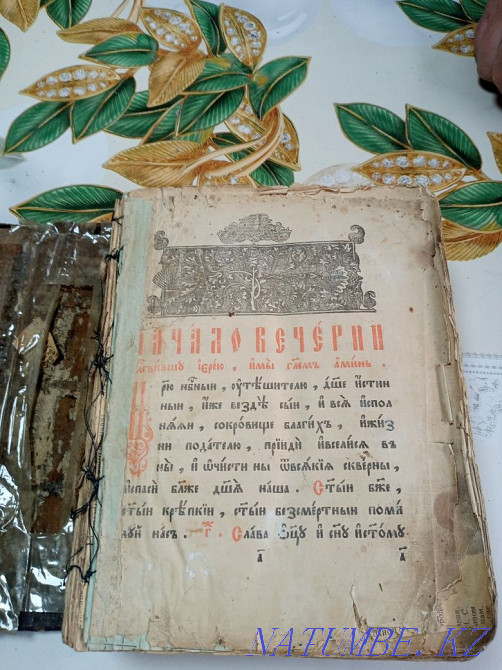 НАЧАЛО ВЕЧЕ́РНИ
і҆ере́ю , и҆мы̀ гл҃емъ а҆ми́нь .
Црю̀ нбⷭ҇ныи , ᲂу҆тѣ́шителю , дш҃е и҆́стин
ныи , и҆́же вездѣ̀ сыи , и҆ всѧ̑ и҆спол
нѧ́ѧи , сокро́вище благи́хъ , и҆ жи́з
ни пода́телю , прїидѝ и҆ всели́сѧ въ
ны̀ , и҆ ѡ҆чи́сти ны ѿ всѧ́кїѧ скве́рны ,
и҆ спасѝ бл҃же дш҃ѧ наша . Ст҃ы́и бж҃е ,
ст҃ы́и крѣ́пкїи , ст҃ы́и безсме́ртныи поми
луй насъ . г҃ . Сла́ва ѻ҆ц҃у̀ и҆ сн҃у и҆ ст҃о́му
а҃ а҃
NATUMBE.KZ